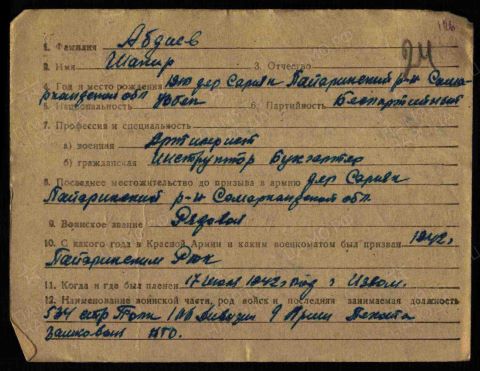 126
24
1. Фамилия Абдиев
2. Имя Шакир 3. Отчество
4. Год и место рождения 1910 дер Сарик Пайаринский р-н Сама-
ркандская обл
5. Национальность Узбек 6. Партийность Беспартийный
7. Профессия и специальность
а) военная Артилерист
б) гражданская Инструктор Бухгалтер
8. Последнее местожительство до призыва в армию дер Сарик
Пайаринский р-н Самаркандская обл.
9. Воинское звание Рядовой
10. С какого года в Красной Армии и каким военкоматом был призван 1942 г
Пайаринским Рвк
11. Когда и где был пленен 17 июля 1942 г под г Изюм.
12. Наименование воинской части, род войск и последняя занимаемая должность
534 стр Полк Дивизии 9 Армии Пехота
ПТО.